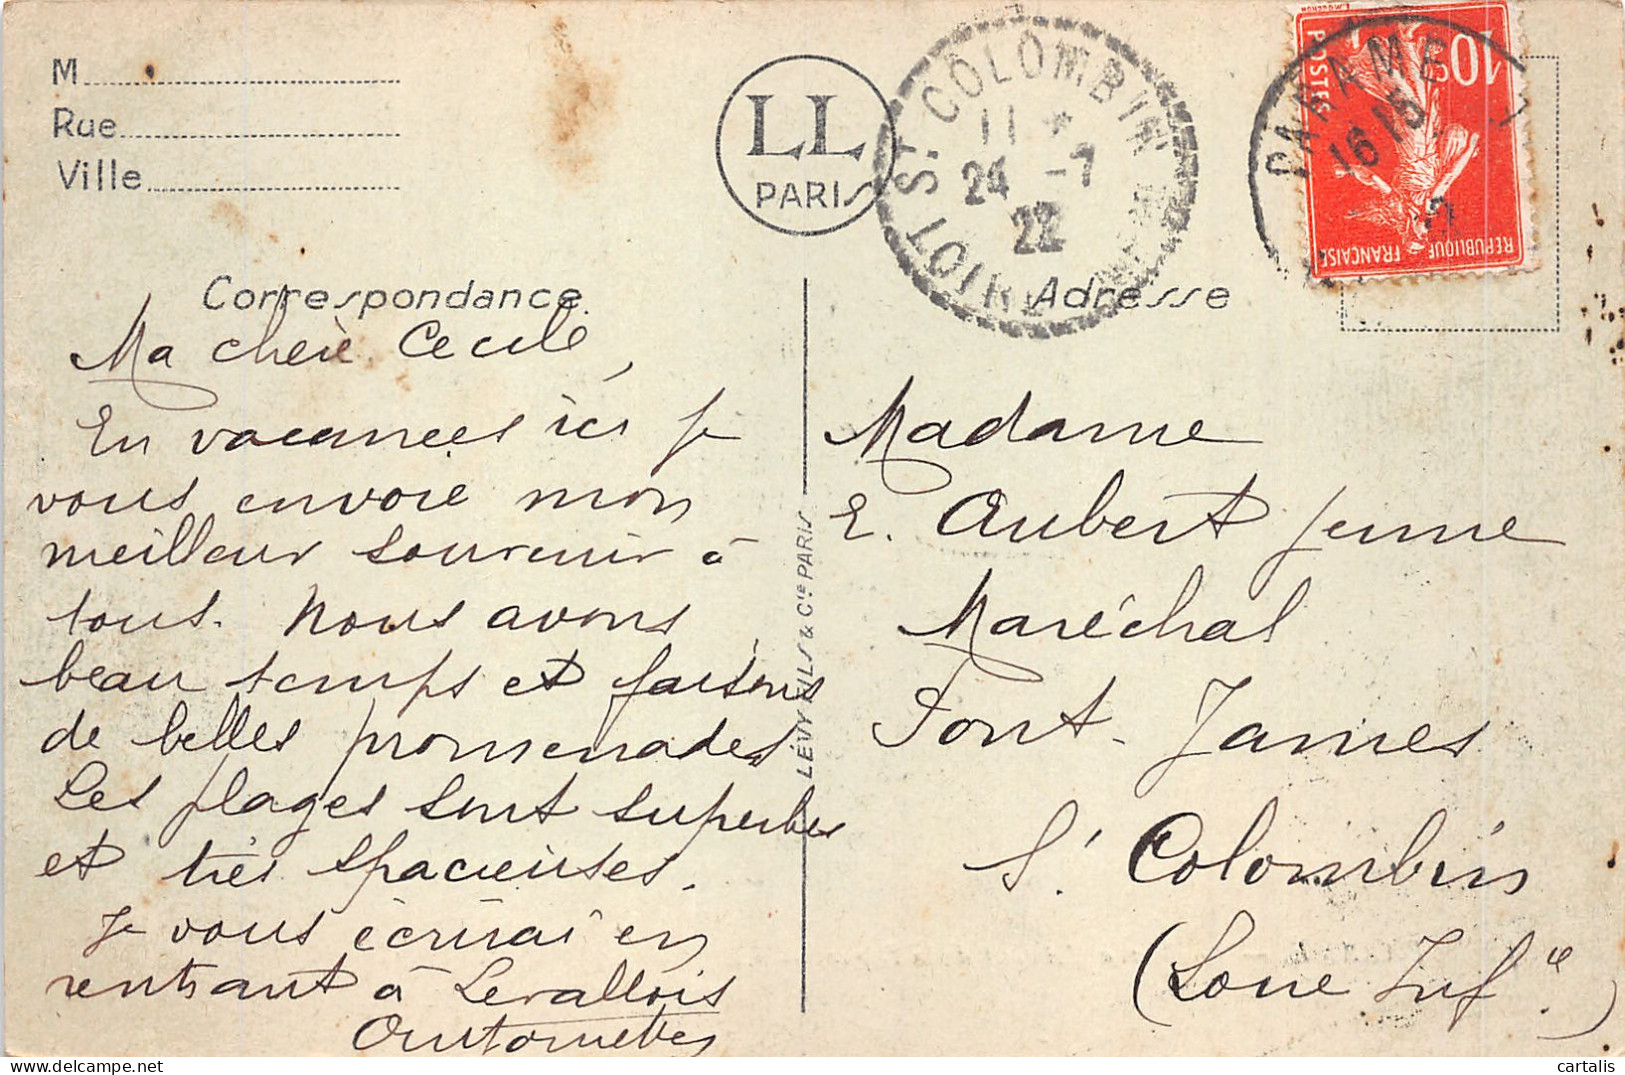 M
Rue
Ville
LL
PARIS
ST COLOMBIN
11 *
24 -7
22
PARAMÉ
16 15
10c
POSTES
REPUBLIQUE FRANÇAISE
Correspondance
Adresse
Ma chère Cecile,
En vacances ici je
vous envoie mon
meilleur souvenir à
tous. Nous avons
beau temps et faisons
de belles promenades
Les plages sont superbes
et très spacieuses.
Je vous écrirai en
rentrant à Levallois
LÉVY FILS & Cie PARIS
Madame
E. Aubert jeune
Maréchal
Pont-James
St Colombin
(Loire Infie)
cartalis